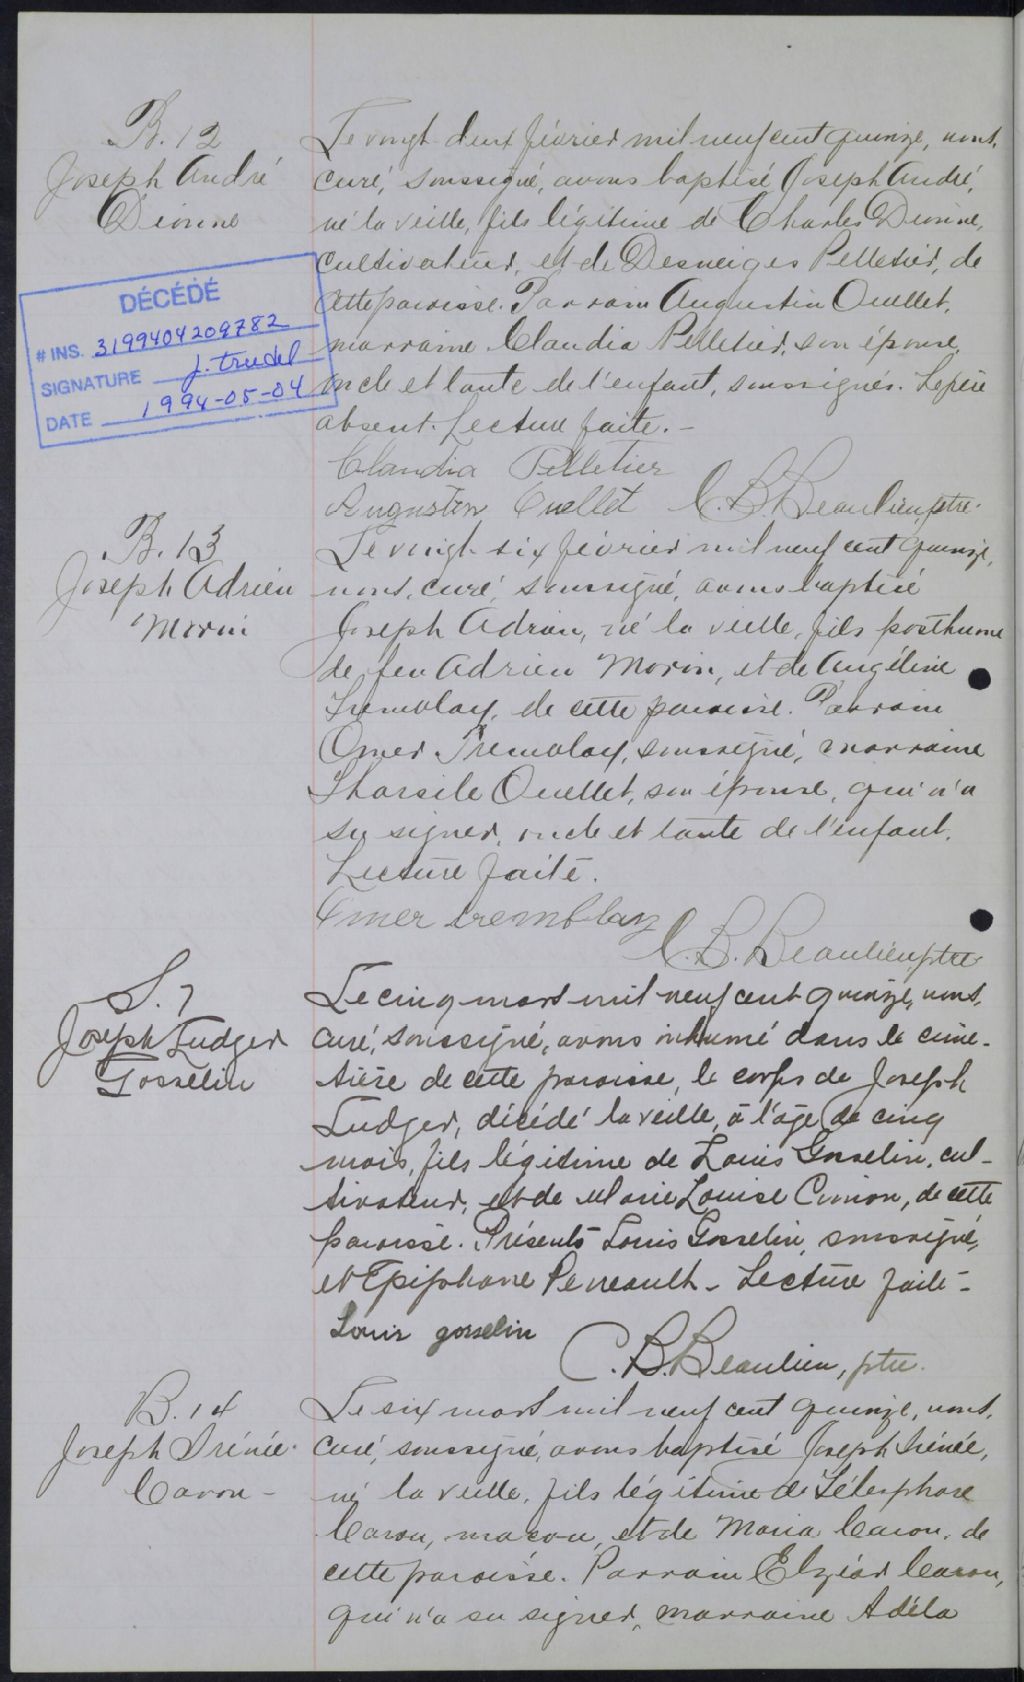 B. 12
Joseph André
Dionne
Le vingt deux février mil neuf cent quinze, nous,
curé, soussigné, avons baptisé Joseph André,
né la veille, fils légitime de Charles Dionne,
cultivateur, et de Desneiges Pelletier, de
cette paroisse. Parrain Augustin Ouellet,
marraine Claudia Pelletier, son épouse,
oncle et tante de l'enfant, soussignés. Le père
absent. Lecture faite. -
Claudia Pelletier
Augustin Ouellet C. B. Beaulieu, ptre.
DÉCÉDÉ
# INS. 3199404209782
SIGNATURE J. Trudel
DATE 1994-05-04
B. 13
Joseph Adrien
Morin
Le vingt-six février mil neuf cent quinze,
nous, curé, soussigné, avons baptisé
Joseph Adrien, né la veille, fils posthume
de feu Adrien Morin, et de Angéline
Tremblay, de cette paroisse. Parrain
Omer Tremblay, soussigné, marraine
Tharsile Ouellet, son épouse, qui n'a
su signer, oncle et tante de l'enfant.
Lecture faite.
Omer Tremblay
C. B. Beaulieu, ptre
S. 7
Joseph Ludger
Gosselin
Le cinq mars mil neuf cent quinze, nous,
curé, soussigné, avons inhumé dans le cime-
tière de cette paroisse, le corps de Joseph
Ludger, décédé la veille, à l'âge de cinq
mois, fils légitime de Louis Gosselin, cul-
tivateur, et de Marie Louise Cimon, de cette
paroisse. Présents Louis Gosselin, soussigné,
et Epiphane Perreault - Lecture faite -
Louis gosselin
C. B. Beaulieu, ptre.
B. 14
Joseph Irénée
Caron -
Le six mars mil neuf cent quinze, nous,
curé, soussigné, avons baptisé Joseph Irénée,
né la veille, fils légitime de Télesphore
Caron, maçon, et de Maria Caron, de
cette paroisse. Parrain Elzéar Caron,
qui n'a su signer, marraine Adéla